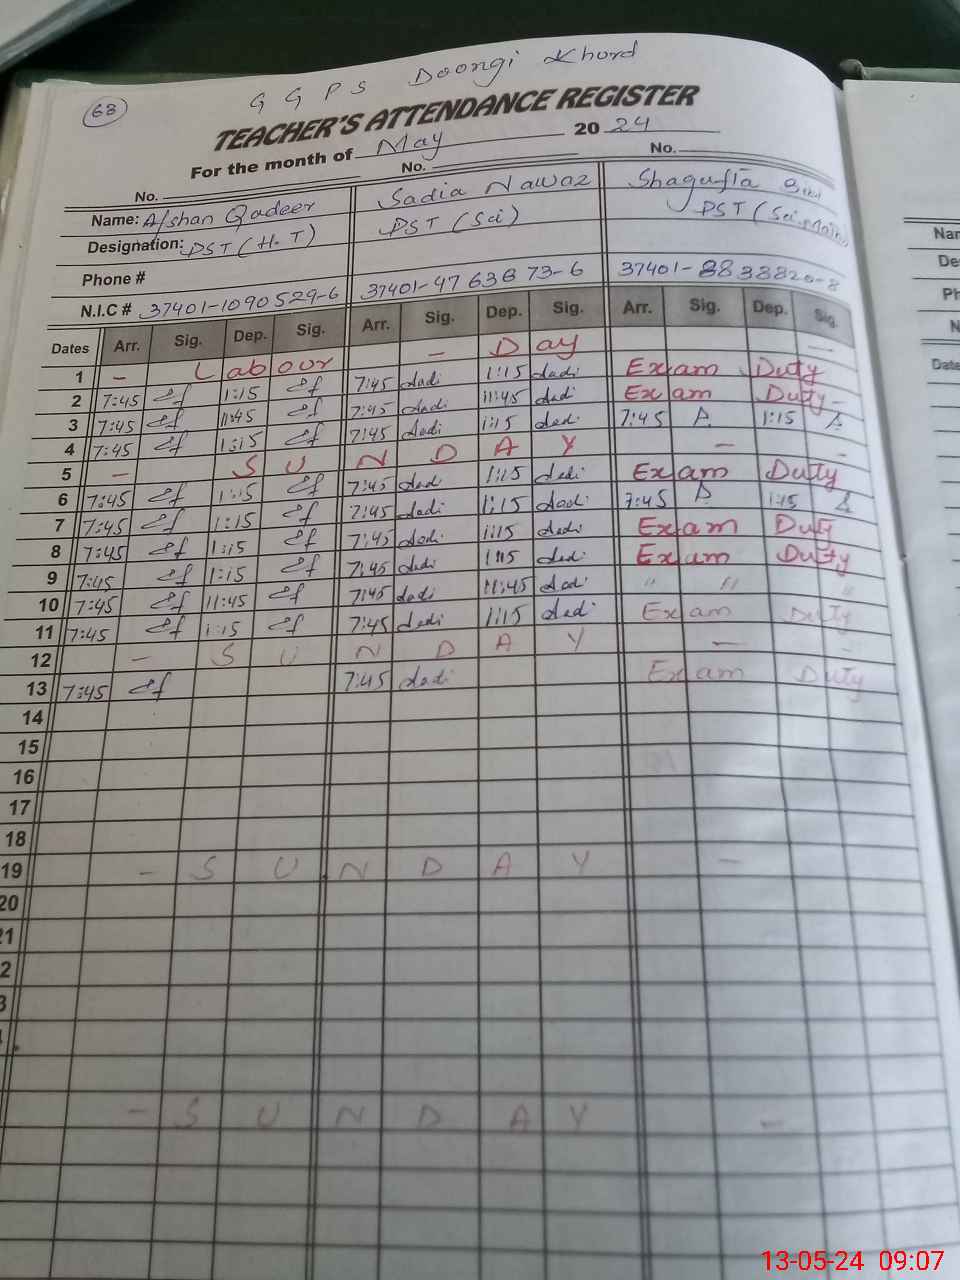 68
G G P S Doongi Khurd
TEACHER'S ATTENDANCE REGISTER
For the month of May 2024
No. No. No.
Name: Afshan Qadeer Sadia Nawaz Shagufta Bibi
Designation: PST (H.T) PST (Sci) PST (Sci-Math)
Phone #
N.I.C # 37401-1090529-6 37401-4763673-6 37401-8838820-8
Dates Arr. Sig. Dep. Sig. Arr. Sig. Dep. Sig. Arr. Sig. Dep. Sig.
1 - Labour - Day -
2 7:45 1:15 7:45 dadi 1:15 dadi Exam Duty
3 7:45 11:45 7:45 dadi 11:45 dadi Exam Duty -
4 7:45 1:15 7:45 dadi 1:15 dadi 7:45 1:15
5 - S U N D A Y - -
6 7:45 1:15 7:45 dadi 1:15 dadi Exam Duty
7 7:45 1:15 7:45 dadi 1:15 dadi 7:45 1:15
8 7:45 1:15 7:45 dadi 1:15 dadi Exam Duty
9 7:45 1:15 7:45 dadi 1:15 dadi Exam Duty
10 7:45 11:45 7:45 dadi 11:45 dadi " " "
11 7:45 1:15 7:45 dadi 1:15 dadi Exam Duty
12 - S U N D A Y - -
13 7:45 7:45 dadi Exam Duty
14
15
16
17
18
19 - S U N D A Y -
20
21
2
3
- S U N D A Y -
Nam
De
Ph
N
Date
13-05-24 09:07